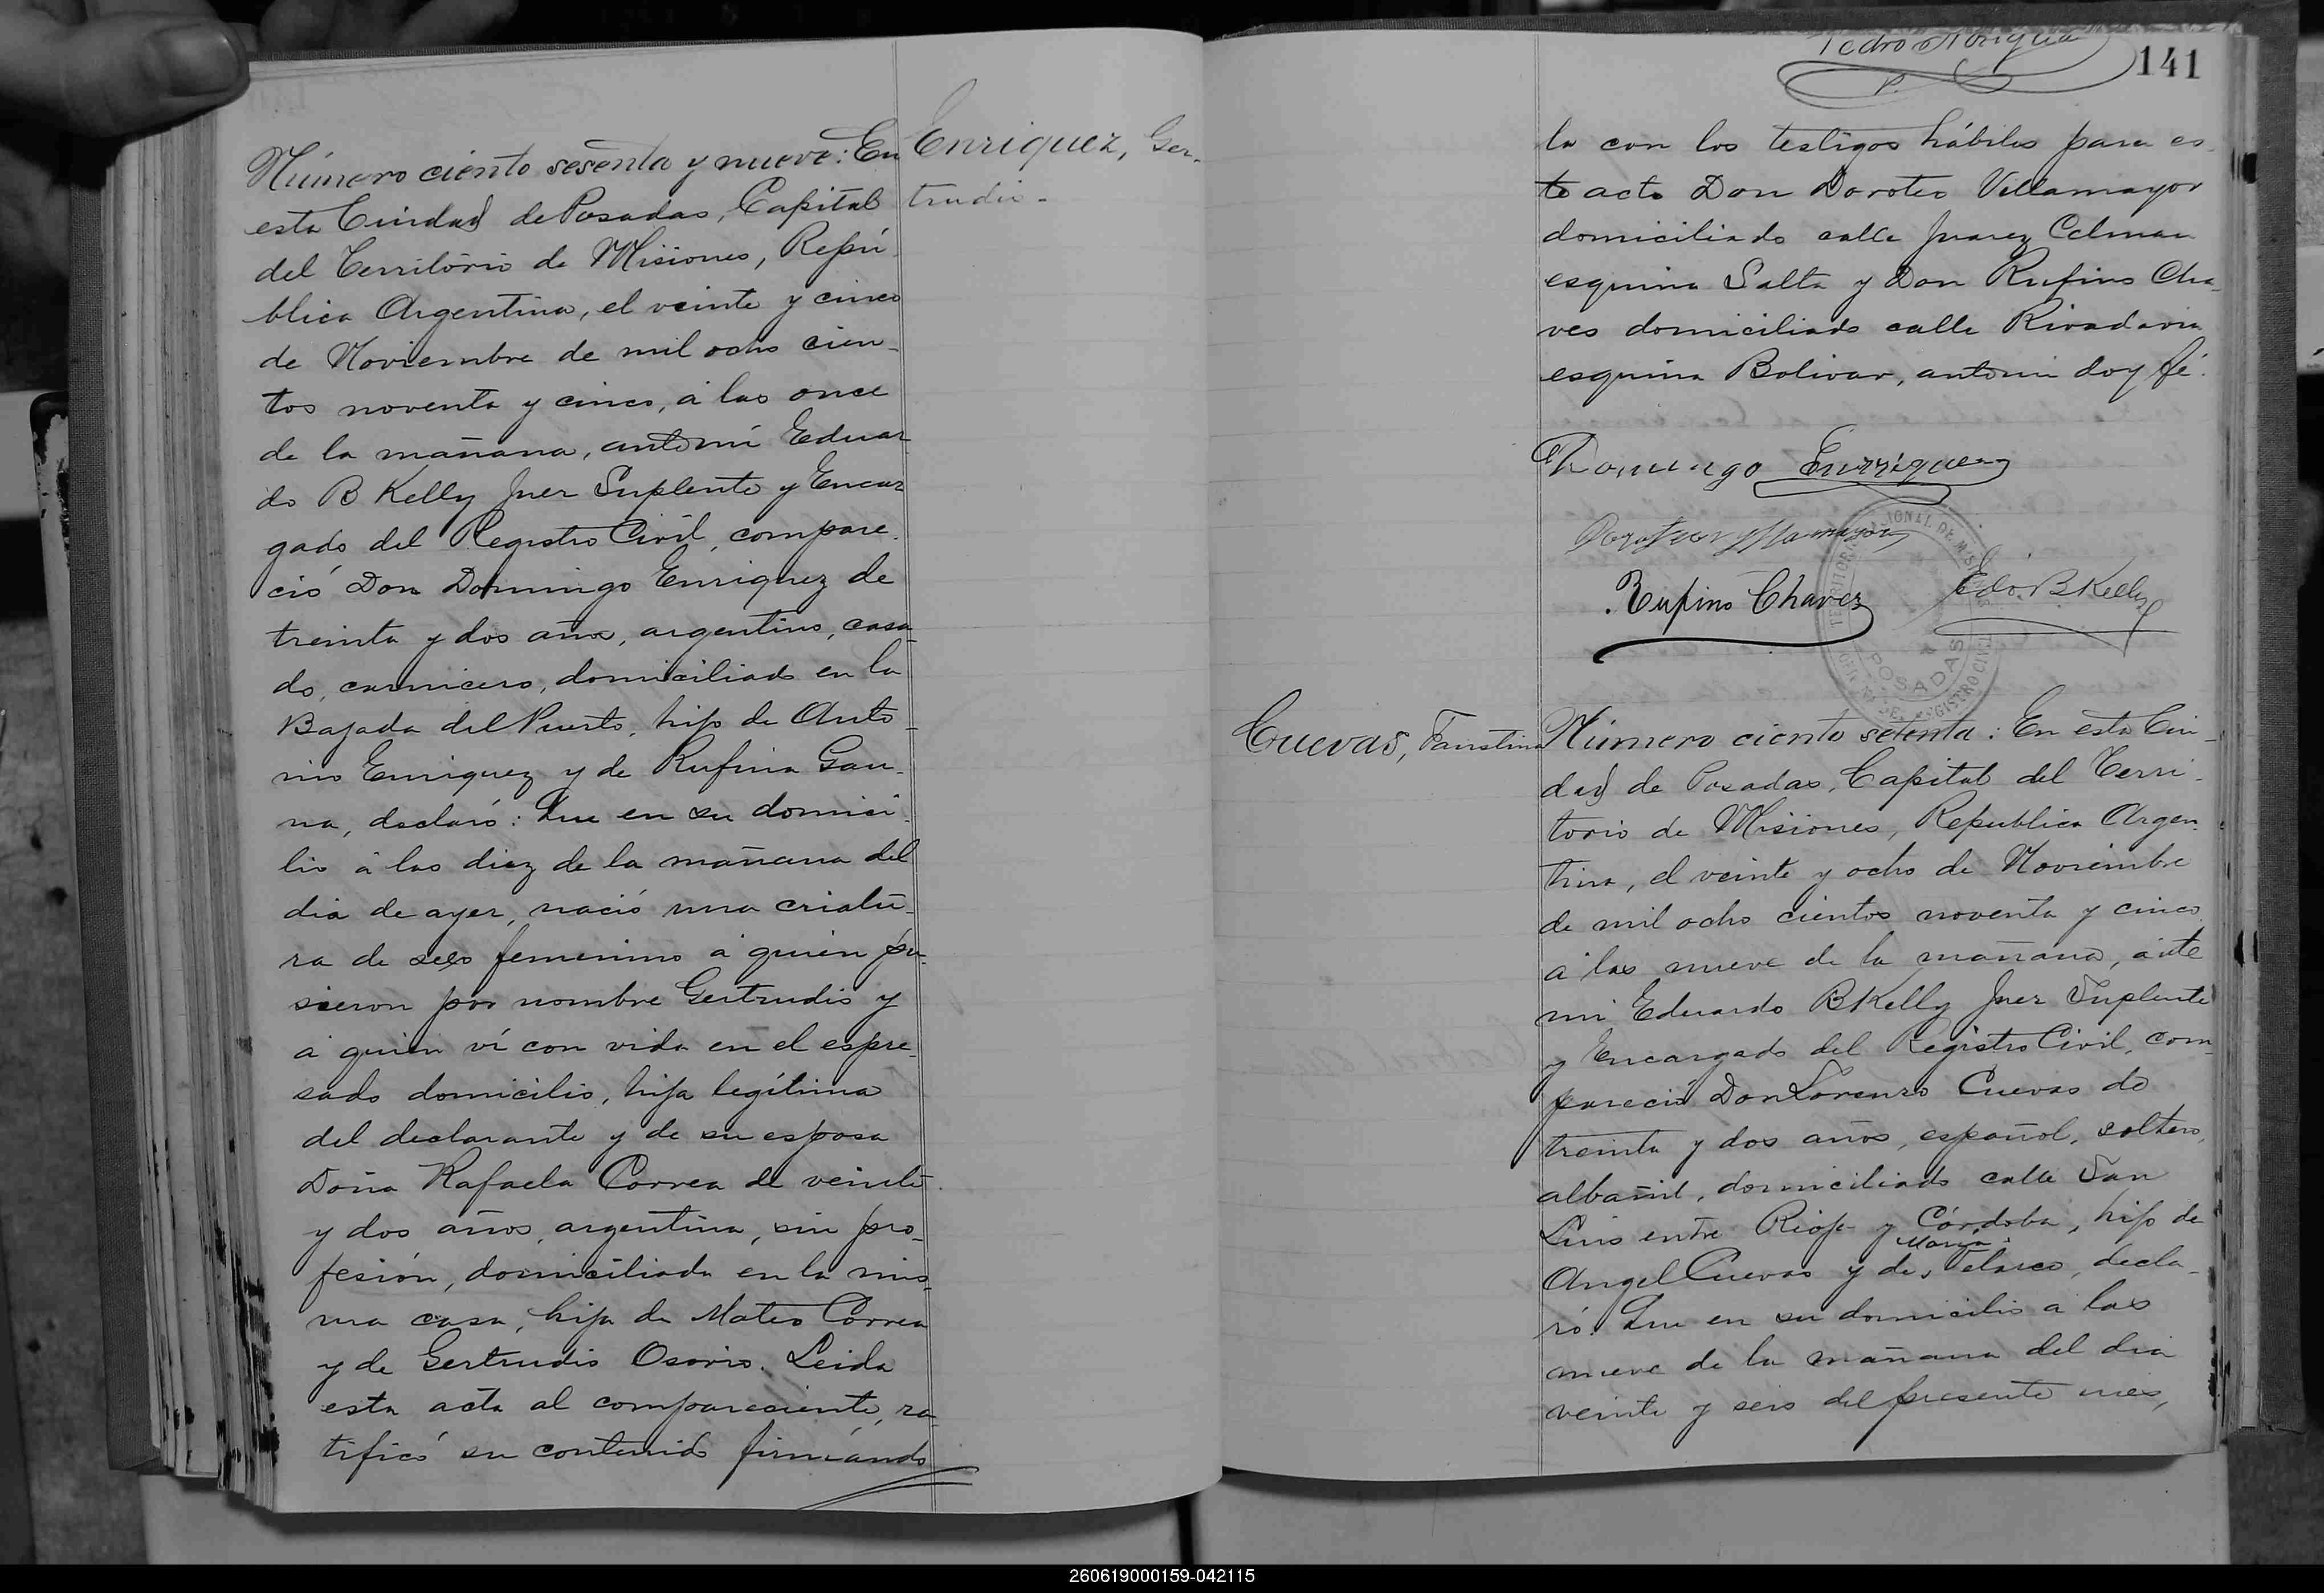 Enriquez, Ger-
trudis-
Número ciento sesenta y nueve: En
esta Ciudad de Posadas, Capital
del Territorio de Misiones, Repú
blica Argentina, el veinte y cinco
de Noviembre de mil ocho cien-
tos noventa y cinco, á las once
de la mañana, antemí Eduar
do B Kelly Juez Suplente y Encar
gado del Registro Civil, compare-
ció Don Domingo Enriquez de
treinta y dos años, argentino, casa-
do, carnicero, domiciliado en la
Bajada del Puerto, hijo de Anto-
nio Enriquez y de Rufina Gau-
na, declaró: Que en su domici-
lio á las diez de la mañana del
dia de ayer, nació una criatu-
ra de sexo femenino á quien pu-
sieron por nombre Gertrudis y
á quien ví con vida en el espre-
sado domicilio, hija legítima
del declarante y de su esposa
Doña Rafaela Correa de veinte
y dos años, argentina, sin pro-
fesión, domiciliada en la mis-
ma casa, hija de Mateo Correa
y de Gertrudis Osorio. Leida
esta acta al compareciente, ra-
tificó su contenido firmándo
Pedro
141
la con los testigos hábiles para es-
te acto Don Doroteo Villamayor
domiciliado calle Juarez Celman
esquina Salta y Don Rufino Cha-
ves domiciliado calle Rivadavia
esquina Bolivar, antemi doy fé.
Domingo Enrriquez
Doroteo Villamayor
Rufino Chavez
Edo. B Kelly
POSADAS
Cuevas, Faustina
Número ciento setenta: En esta Ciu-
dad de Posadas, Capital del Terri-
torio de Misiones, Republica Argen-
tina, el veinte y ocho de Noviembre
de mil ocho cientos noventa y cinco
á las nueve de la mañana, ante
mi Eduardo B Kelly Juez Suplente
y Encargado del Registro Civil, com-
pareció Don Lorenzo Cuevas de
treinta y dos años, español, soltero,
albañil, domiciliado calle San
Luis entre Rioja y Córdoba, hijo de
Angel Cuevas y de María Velasco, decla-
ró: Que en su domicilio á las
nueve de la mañana del dia
veinte y seis del presente mes,
260619000159-042115